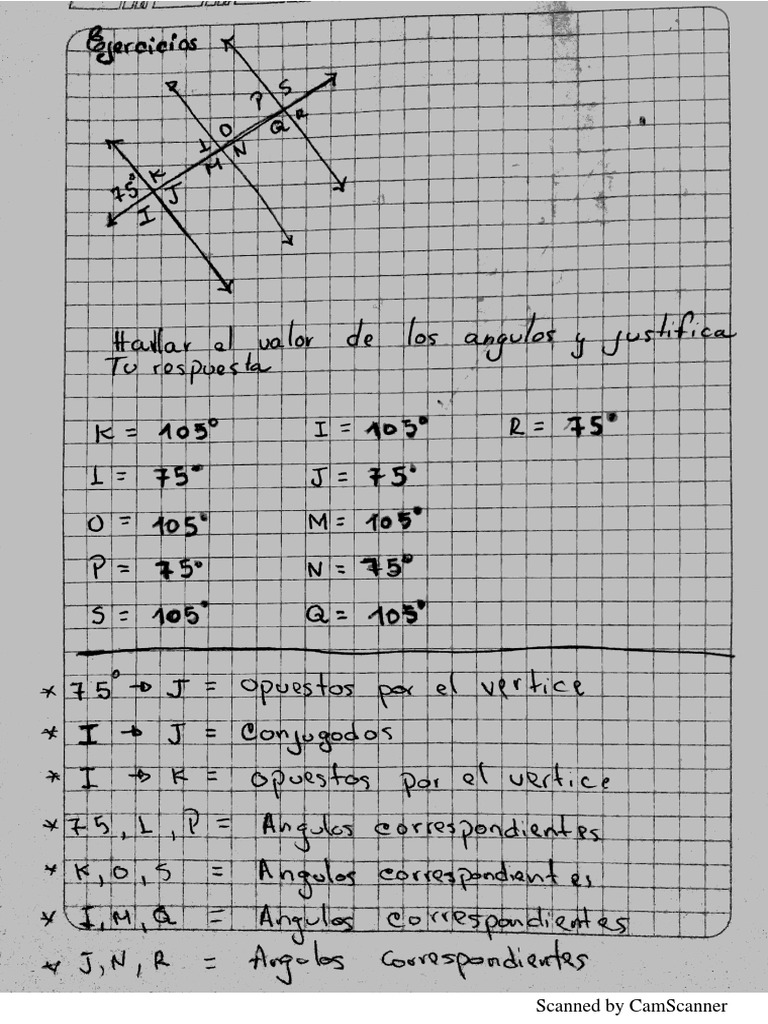 Ejercicios
S
P
O
Q R
L
N
K
M
75°
J
I
Hallar el valor de los angulos y justifica
Tu respuesta
K = 105° I = 105° R = 75°
L = 75° J = 75°
O = 105° M = 105°
P = 75° N = 75°
S = 105° Q = 105°
* 75° → J = opuestos por el vertice
* I → J = Conjugodos
* I → K = opuestos por el vertice
* 75, L, P = Angulos correspondientes
* K, O, S = Angulos correspondientes
* I, M, Q = Angulos correspondientes
* J, N, R = Angulos correspondientes
Scanned by CamScanner